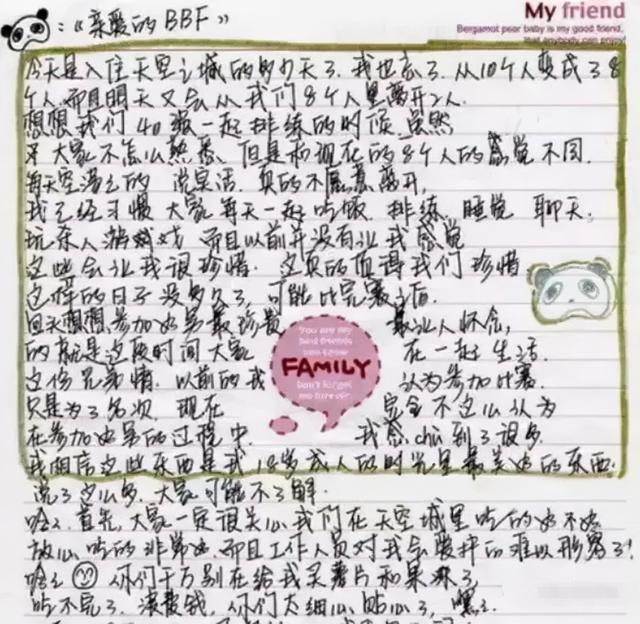 :《亲爱的BBF》
My friend
Bergamot pear baby is my good friend,
that anybody can enjoy!
今天是入住天空之城的多少天了.我也忘了.从10个人变成了8
个人.而且明天又会从我们8个人里离开2人.
想想我们40强一起排练的时候虽然
大家不怎么熟悉.但是和现在的8个人的感觉不同.
每天空荡荡的 说真话.真的不愿意离开,
我已经习惯大家每天一起吃饭.排练.睡觉 聊天.
玩杀人游戏 而且以前并没有让我感觉
这些会让我很珍惜.这真的值得我们珍惜
这样的日子没多久了,可能比完赛之后.
回头想想参加 最 最让人怀念,
的就是这段时间大家 在一起生活.
这份兄弟情.以前的我 认为参加比赛.
只是为了名次.现在 完全不这么认为
在参加 的过程中. 我感chù到了很多
我相信这些东西是我18岁成人的时光里最美好的东西.
You are my
best friends
you know
FAMILY
Don't forget
me forever.
说了这么多.大家可能不了解.
哈哈 首先.大家一定很关心我们在天空城里吃的好不好
放心吃的非常好.而且工作人员对我们 的难以形容了!
哈哈 你们千万别在给我买薯片和果冻了
吃不完了.浪费钱.你们太细心.贴心了,嘿嘿.